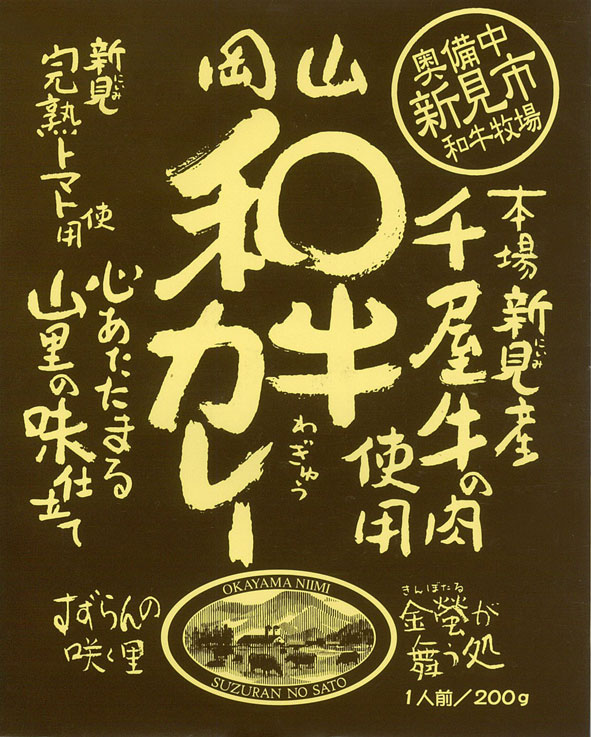 岡山
和牛
わぎゅう
カレー
奥備中
新見市
和牛牧場
本場新見産
にいみ
千屋牛の肉
使用
新見
にいみ
完熟トマト使用
心あたたまる
山里の味仕立て
すずらんの
咲く里
OKAYAMA NIIMI
SUZURAN NO SATO
きんぼたる
金螢が
舞う処
1人前/200g